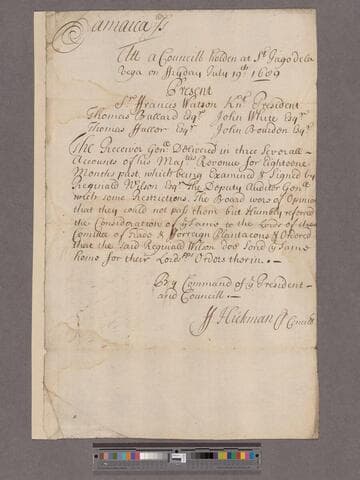 Jamaica ss
Att a Councill holden at St Jago de la
Vega on ffryday July 19th 1689
Present
Sr ffrancis Watson Knt President
Thomas Ballard Esqr John White Esqr
Thomas ffuller Esqr John Bourdon Esqr
The Receiver Genll Delivered in three severall
Accounts of his Majties Revenue for Eighteene
Months past, which being Examined & Signed by
Reginald Wilson Esqr The Deputy Auditor Genll
with some Restrictions. The Board were of Opinion
that they could not pass them but Humbly referred
the Consideration of ye same to the Lords of the
Comitte of Trade & fforreign Plantacons & Ordered
that the said Reginald Wilson doe send ye same
home for their Lordpps Orders therein. –
By Command of ye President
and Councill. –
Hickman Cl Concill